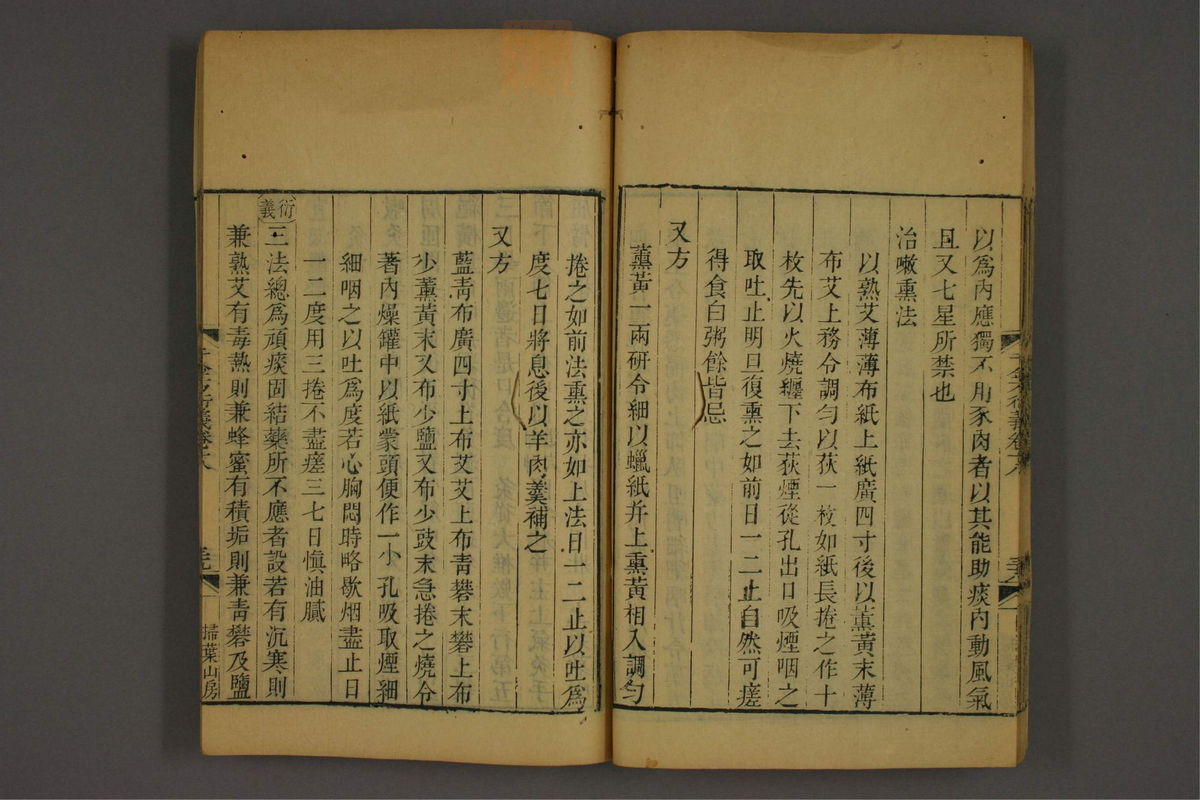 以爲內應獨不用豕肉者以其能助痰內動風氣
且又七星所禁也
治嗽熏法
以熟艾薄薄布紙上紙廣四寸後以薰黃末薄
布艾上務令調勻以荻一枚如紙長捲之作十
枚先以火燒纏下去荻煙從孔出口吸煙咽之
取吐止明旦復熏之如前日一二止自然可瘥
得食白粥餘皆忌
又方
薰黃一兩研令細以蠟紙幷上熏黃相入調勻
捲之如前法熏之亦如上法日一二止以吐爲
度七日將息後以羊肉羹補之
又方
藍青布廣四寸上布艾艾上布青礬末礬上布
少薰黃末又布少鹽又布少豉末急捲之燒令
著內燥罐中以紙蒙頭便作一小孔吸取煙細
細咽之以吐爲度若心胸悶時略歇烟盡止日
一二度用三捲不盡瘥三七日慎油膩
衍義
三法總爲頑痰固結藥所不應者設若有沉寒則
兼熟艾有毒熱則兼蜂蜜有積垢則兼青礬及鹽
千金方衍義卷十八
掃葉山房